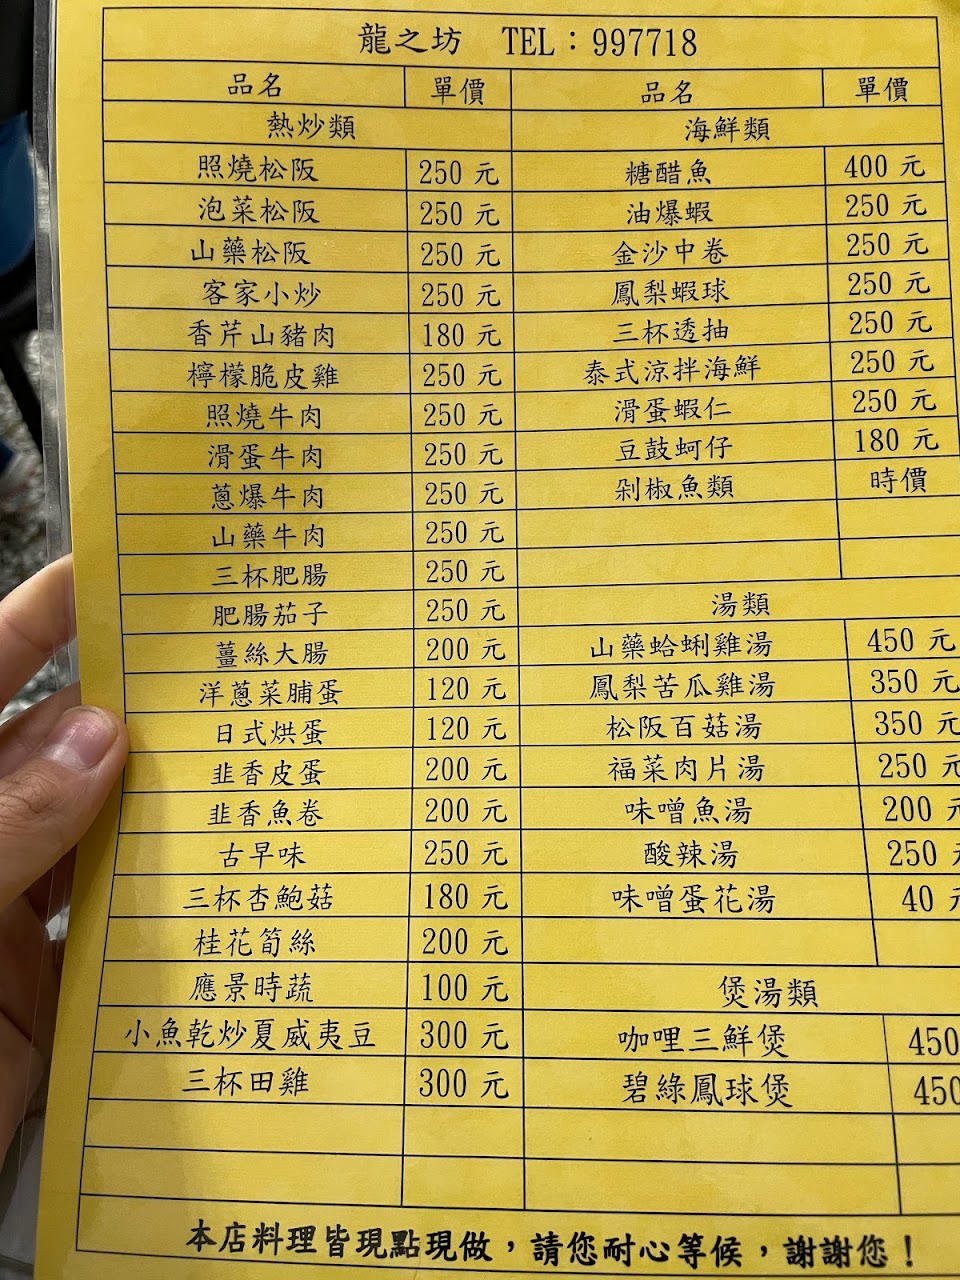 龍之坊 TEL：997718
品名 單價 品名 單價
熱炒類 海鮮類
照燒松阪 250 元 糖醋魚 400 元
泡菜松阪 250 元 油爆蝦 250 元
山藥松阪 250 元 金沙中卷 250 元
客家小炒 250 元 鳳梨蝦球 250 元
香芹山豬肉 180 元 三杯透抽 250 元
檸檬脆皮雞 250 元 泰式涼拌海鮮 250 元
照燒牛肉 250 元 滑蛋蝦仁 250 元
滑蛋牛肉 250 元 豆鼓蚵仔 180 元
蔥爆牛肉 250 元 剁椒魚類 時價
山藥牛肉 250 元
三杯肥腸 250 元
肥腸茄子 250 元 湯類
薑絲大腸 200 元 山藥蛤蜊雞湯 450 元
洋蔥菜脯蛋 120 元 鳳梨苦瓜雞湯 350 元
日式烘蛋 120 元 松阪百菇湯 350 元
韭香皮蛋 200 元 福菜肉片湯 250 元
韭香魚卷 200 元 味噌魚湯 200 元
古早味 250 元 酸辣湯 250 元
三杯杏鮑菇 180 元 味噌蛋花湯 40 元
桂花筍絲 200 元
應景時蔬 100 元 煲湯類
小魚乾炒夏威夷豆 300 元 咖哩三鮮煲 450
三杯田雞 300 元 碧綠鳳球煲 450
本店料理皆現點現做，請您耐心等候，謝謝您！